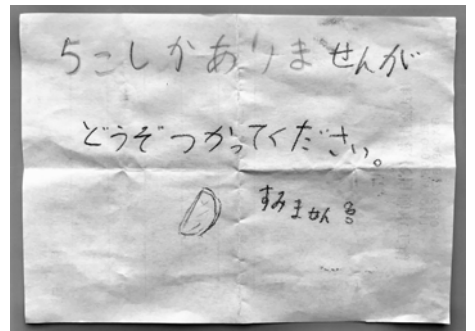 5こしかありませんが
どうぞつかってください。
すみません